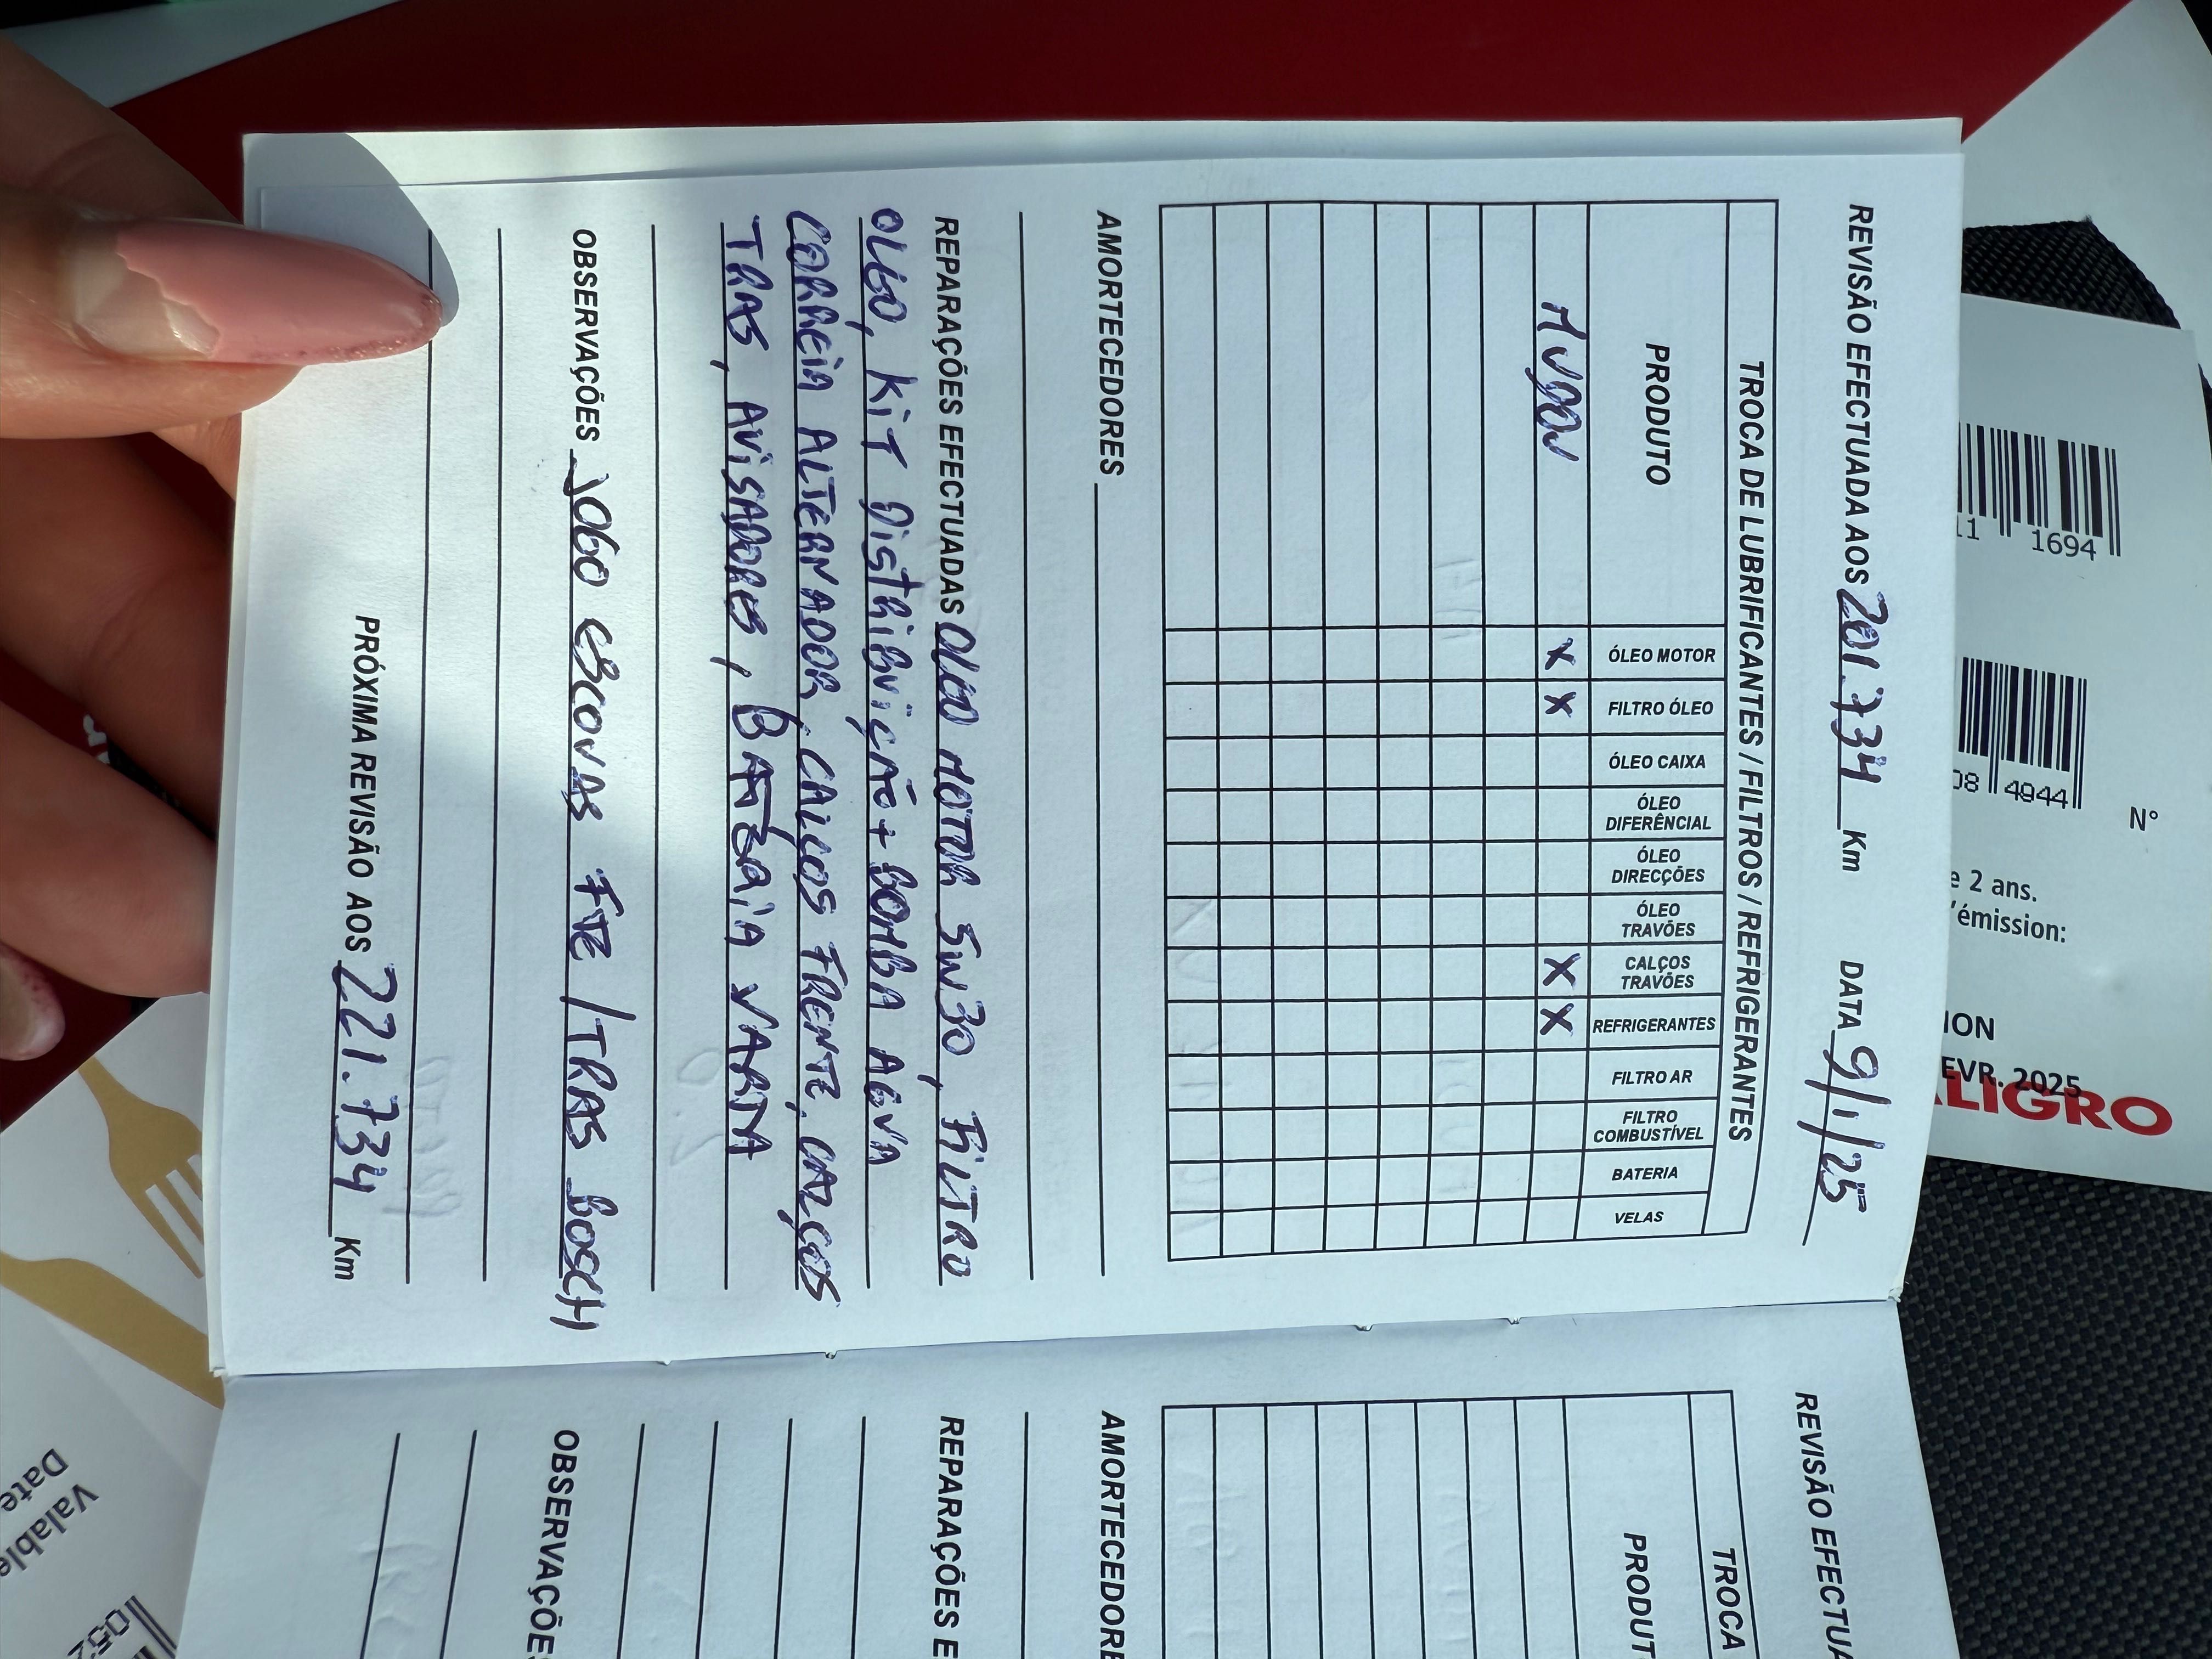 REVISÃO EFECTUADA AOS 201.734 Km DATA 9/1/25
TROCA DE LUBRIFICANTES / FILTROS / REFRIGERANTES
PRODUTO
ÓLEO MOTOR
FILTRO ÓLEO
ÓLEO CAIXA
ÓLEO DIFERÊNCIAL
ÓLEO DIRECÇÕES
ÓLEO TRAVÕES
CALÇOS TRAVÕES
REFRIGERANTES
FILTRO AR
FILTRO COMBUSTÍVEL
BATERIA
VELAS
X X X X
AMORTECEDORES
REPARAÇÕES EFECTUADAS OLEO MOTOR 5W30, FILTRO
OLEO, KIT DISTRIBUIÇÃO + BOMBA AGUA
CORREIA ALTERNADOR, CALÇOS FRENTE, CALÇOS
TRAS, AVISADORES, BATERIA VARTA
OBSERVAÇÕES JOGO ESCOVAS FTE / TRAS BOSCH
PRÓXIMA REVISÃO AOS 221.734 Km
REVISÃO EFECTUA
TROCA
PRODUT
AMORTECEDORE
REPARAÇÕES E
OBSERVAÇÕES
11 1694
08 4944
N°
e 2 ans.
'émission:
ION
EVR. 2025
LIGRO
Valable
Date
052